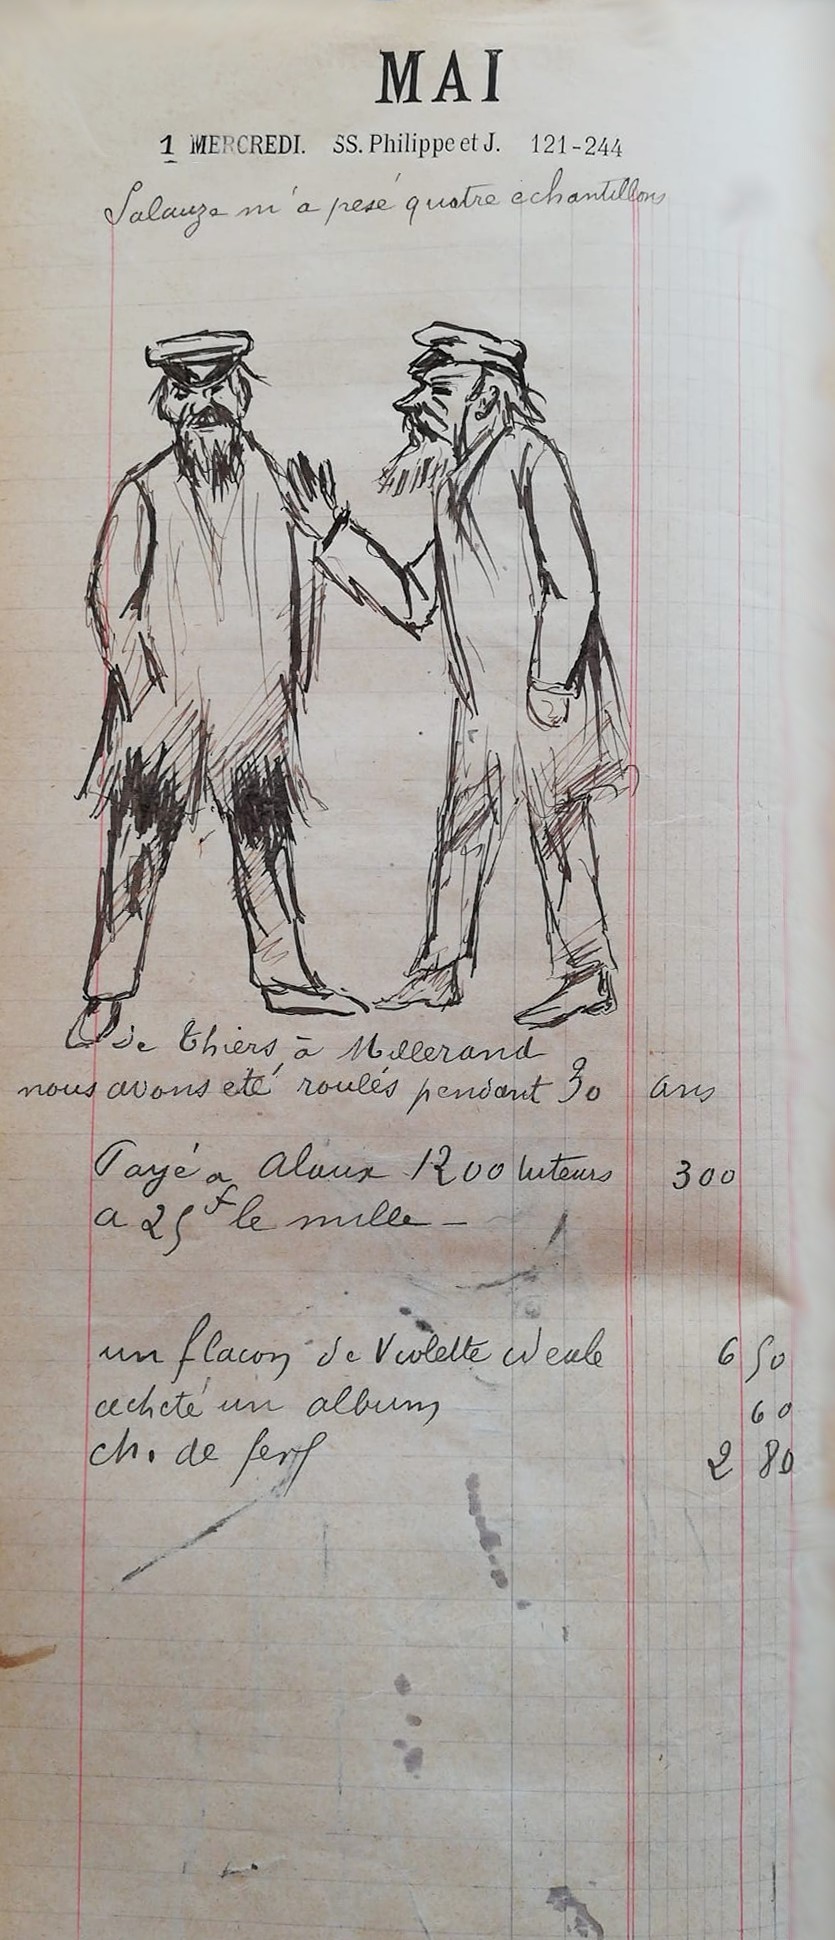 MAI
1 MERCREDI. SS. Philippe et J. 121-244
Salauze m'a pesé quatre echantillons
de Thiers à Millerand
nous avons eté roulés pendant 30 ans
Payé a Alaux 1200 luteurs 300
a 25f le mille —
un flacon de Violette 6 50
acheté un album 60
ch. de fer 2 80